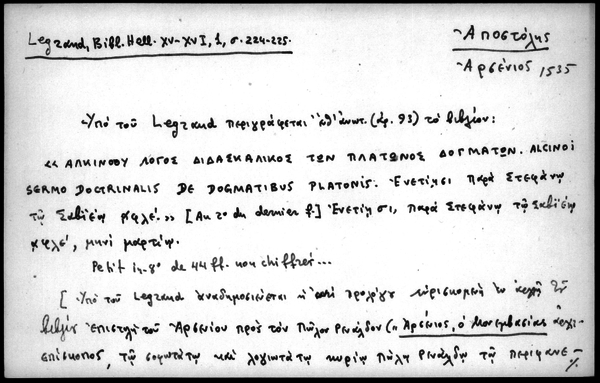 Legrand, Bibl. Hell. XV-XVI, 1, σ. 224-225.
Ἀποστόλης
Ἀρσένιος 1535
Ὑπό τοῦ Legrand περιγράφεται (ἀρ. 93) τό βιβλίον:
«ΑΛΚΙΝΟΟΥ ΛΟΓΟΣ ΔΙΔΑΣΚΑΛΙΚΟΣ ΤΩΝ ΠΛΑΤΩΝΟΣ ΔΟΓΜΑΤΩΝ. ALCINOI
SERMO DOCTRINALIS DE DOGMATIBUS PLATONIS. Ἐνετίῃσι παρά Στεφάνῳ
τῷ Σαβιέῳ ͵αφλέ.» [Au 20 du dernier f.] Ἐνετίῃσι, παρά Στεφάνῳ τῷ Σαβιέῳ
͵αφλέ, μηνί μαρτίῳ.
Petit in-8° de 44 ff. non chiffrés...
[Ὑπό τοῦ Legrand ἀναδημοσιεύεται ἡ προλόγου εὑρισκομένη ἐν ἀρχῇ τοῦ
βιβλίου ἐπιστολή τοῦ Ἀρσενίου πρός τόν Παῦλον Ρενάλδον (Ἀρσένιος, ὁ Μονεμβασίας ἀρχι-
επίσκοπος, τῷ σοφωτάτῳ καί λογιωτάτῳ κυρίῳ Παύλῳ Ρενάλδῳ τῷ περιφανε-
./.